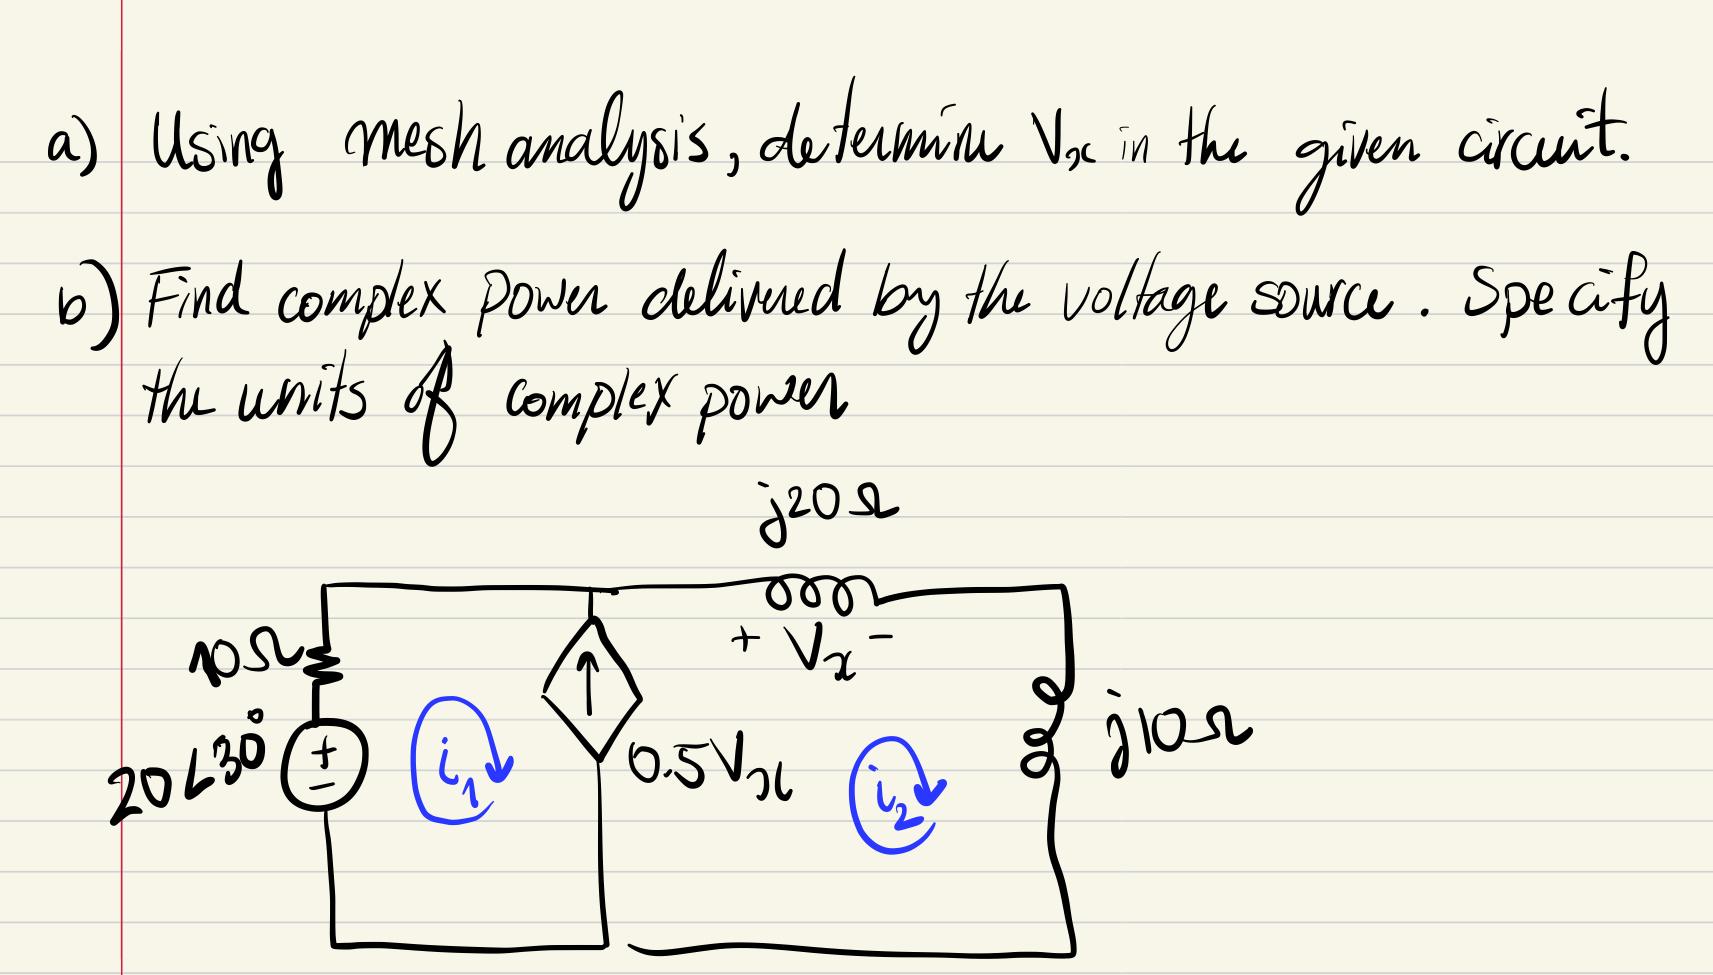 a) Using mesh analysis, determine Vx in the given circuit.
b) Find complex power delivered by the voltage source. Specify
the units of complex power
j20Ω
10Ω
+ Vx -
20∠30°
+
-
i1
0.5Vx
i2
j10Ω